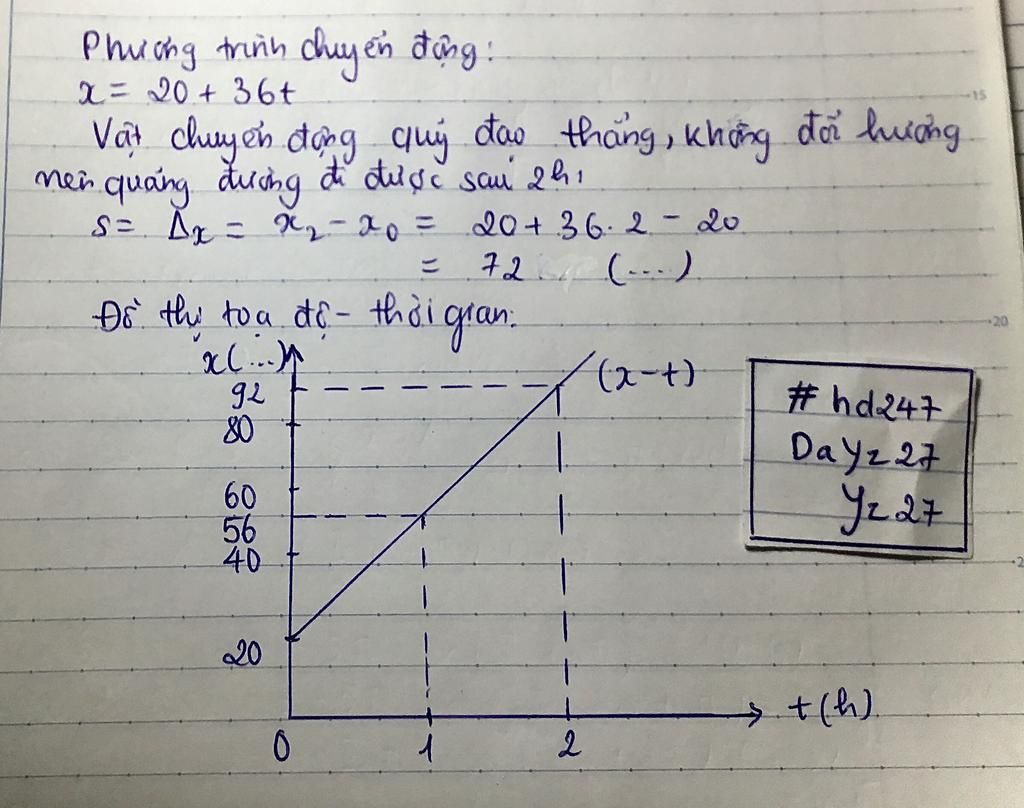 Phương trình chuyển động:
x = 20 + 36t
Vật chuyển động quỹ đạo thẳng, không đổi hướng
nên quãng đường đi được sau 2h:
s = Δx = x₂ - x₀ = 20 + 36.2 - 20
= 72 (...)
Đồ thị tọa độ - thời gian:
x(...)
92
(x-t)
80
60
56
40
20
0 1 2
t(h)
# hd247
DaYz27
Yz27
15
20
2